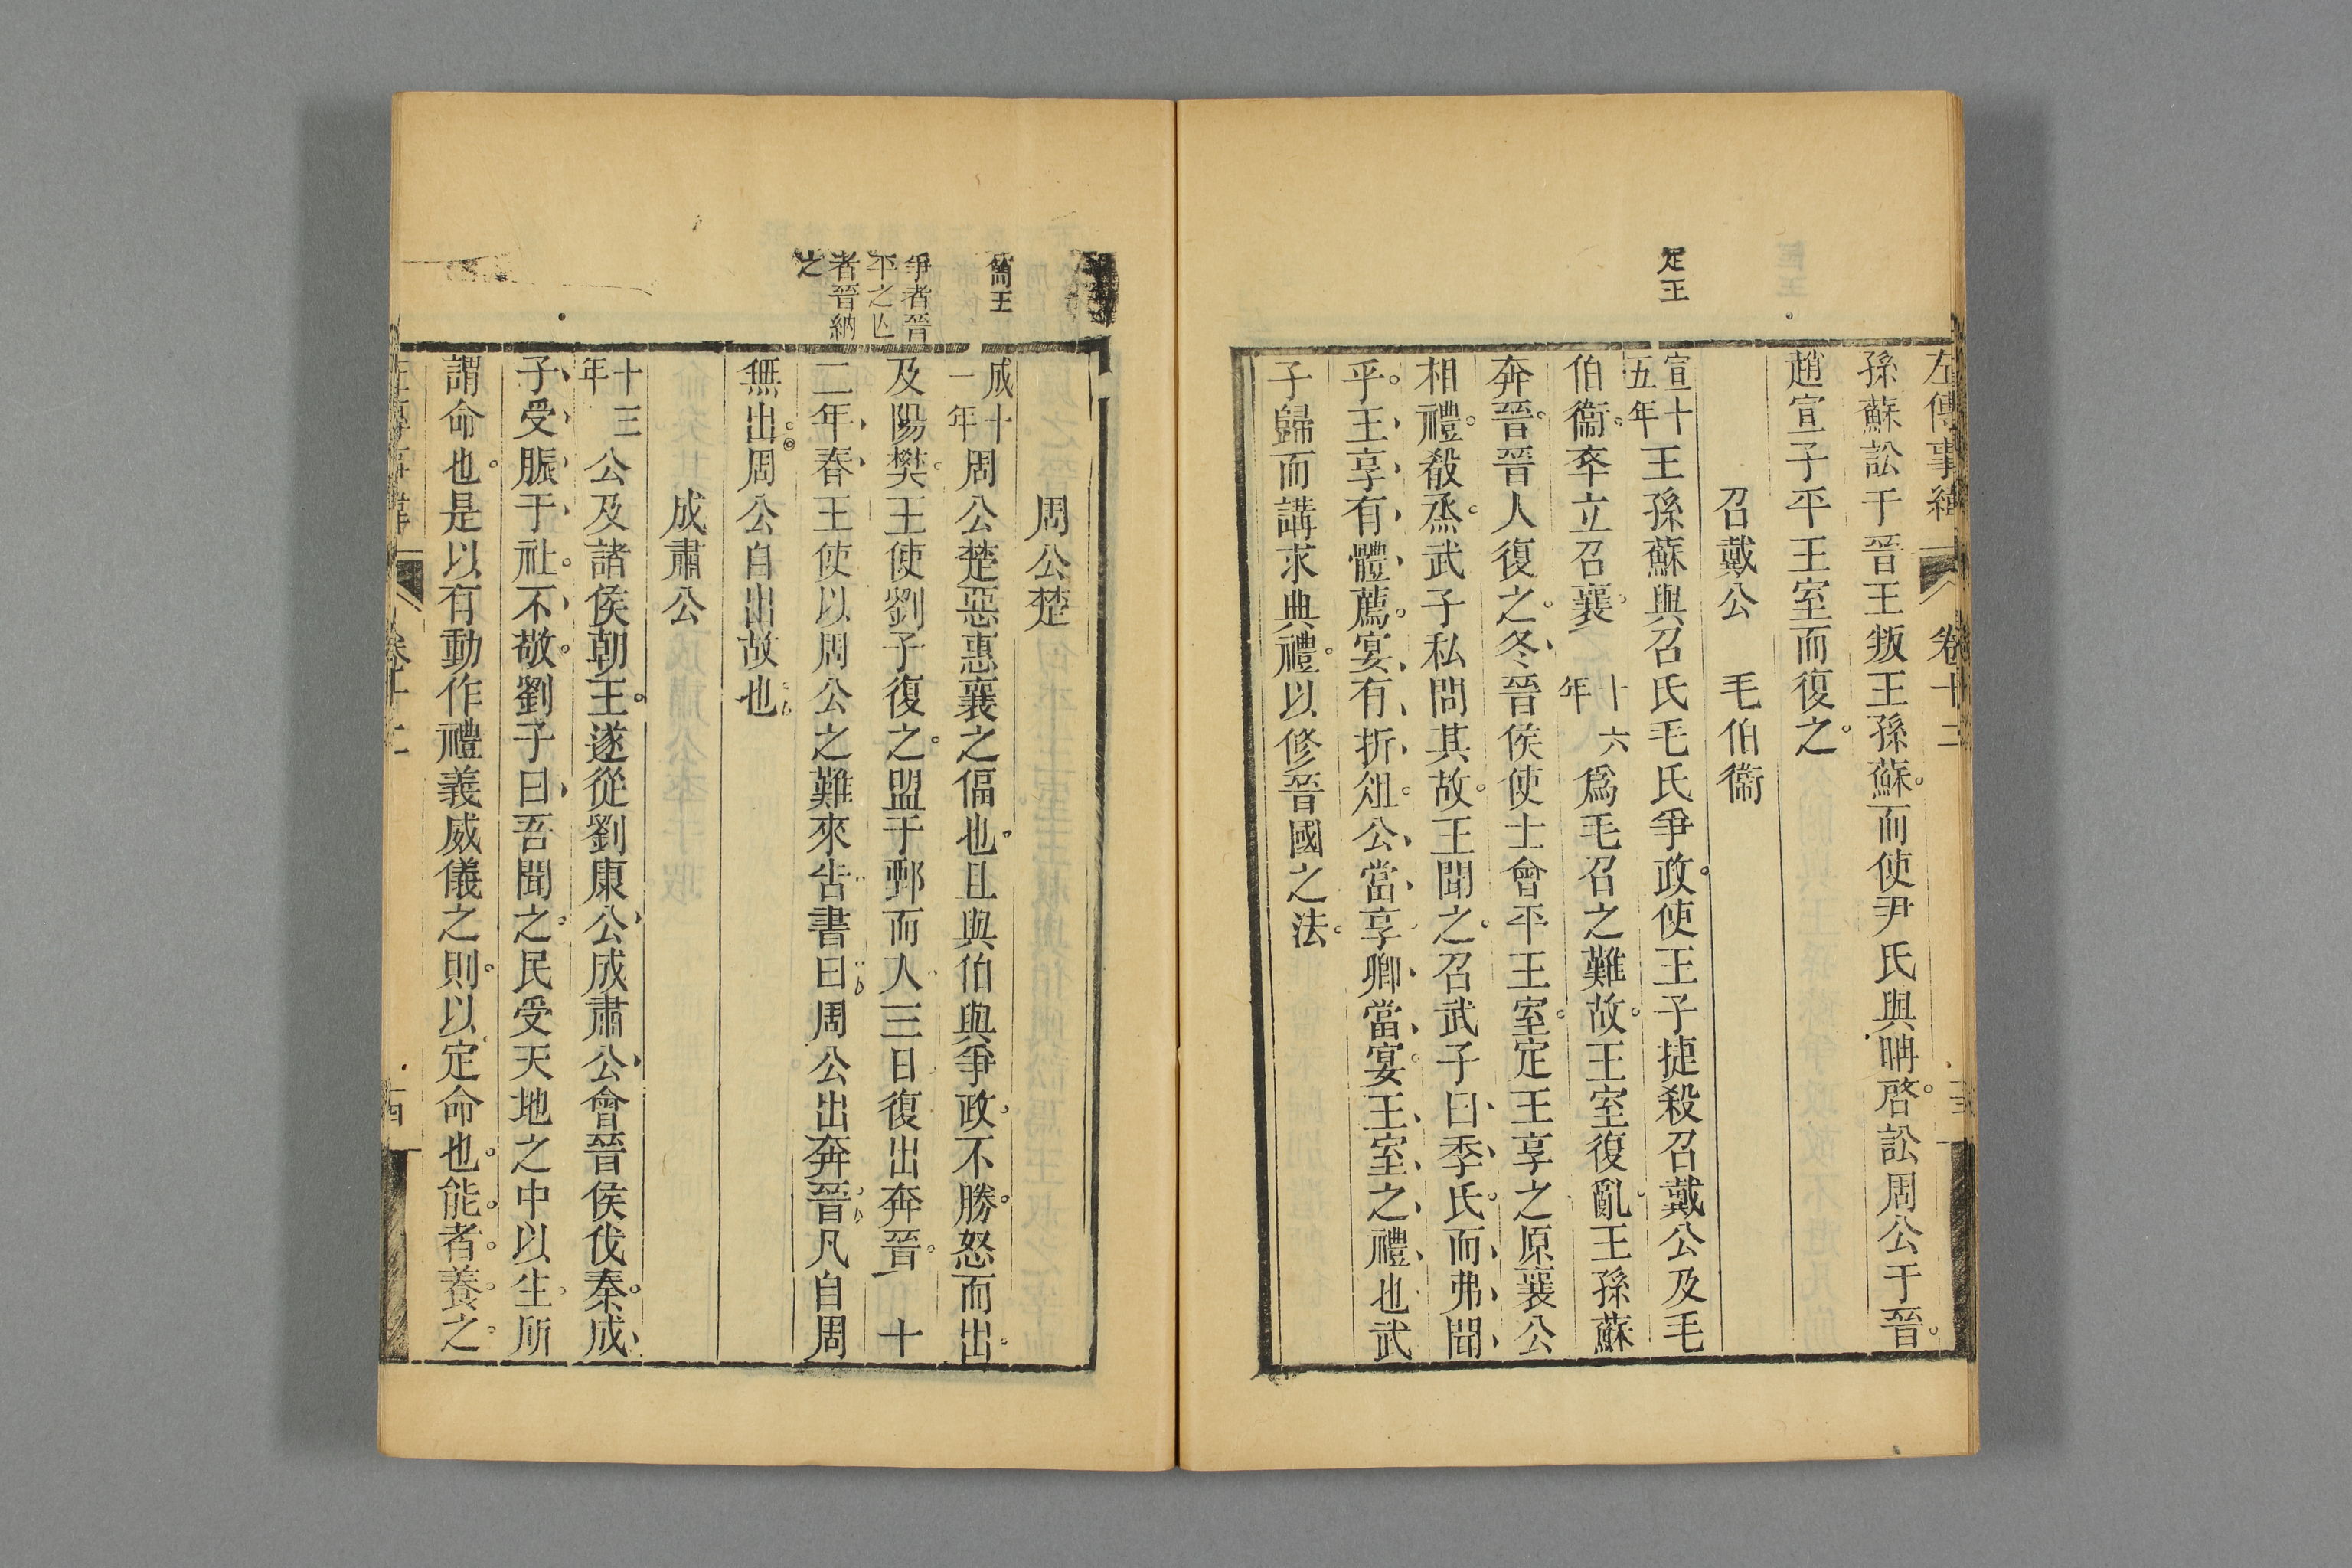 左傳事緯 卷十二
孫蘇訟于晉王叛王孫蘇而使尹氏與聃啓訟周公于晉
趙宣子平王室而復之
召戴公 毛伯衞
定王
宣十五年王孫蘇與召氏毛氏爭政使王子捷殺召戴公及毛
伯衞卒立召襄 十六年爲毛召之難故王室復亂王孫蘇
奔晉晉人復之冬晉侯使士會平王室定王享之原襄公
相禮殽烝武子私問其故王聞之召武子曰季氏而弗聞
乎王享有體薦宴有折俎公當享卿當宴王室之禮也武
子歸而講求典禮以修晉國之法
周公楚
簡王
成十一年周公楚惡惠襄之偪也且與伯與爭政不勝怒而出
爭者晉
平之亾
者晉納
之
及陽樊王使劉子復之盟于鄄而入三日復出奔晉 十
二年春王使以周公之難來告書曰周公出奔晉凡自周
無出周公自出故也
成肅公
十三年公及諸侯朝王遂從劉康公成肅公會晉侯伐秦成
子受脤于社不敬劉子曰吾聞之民受天地之中以生所
謂命也是以有動作禮義威儀之則以定命也能者養之
左傳事緯 卷十二 十四